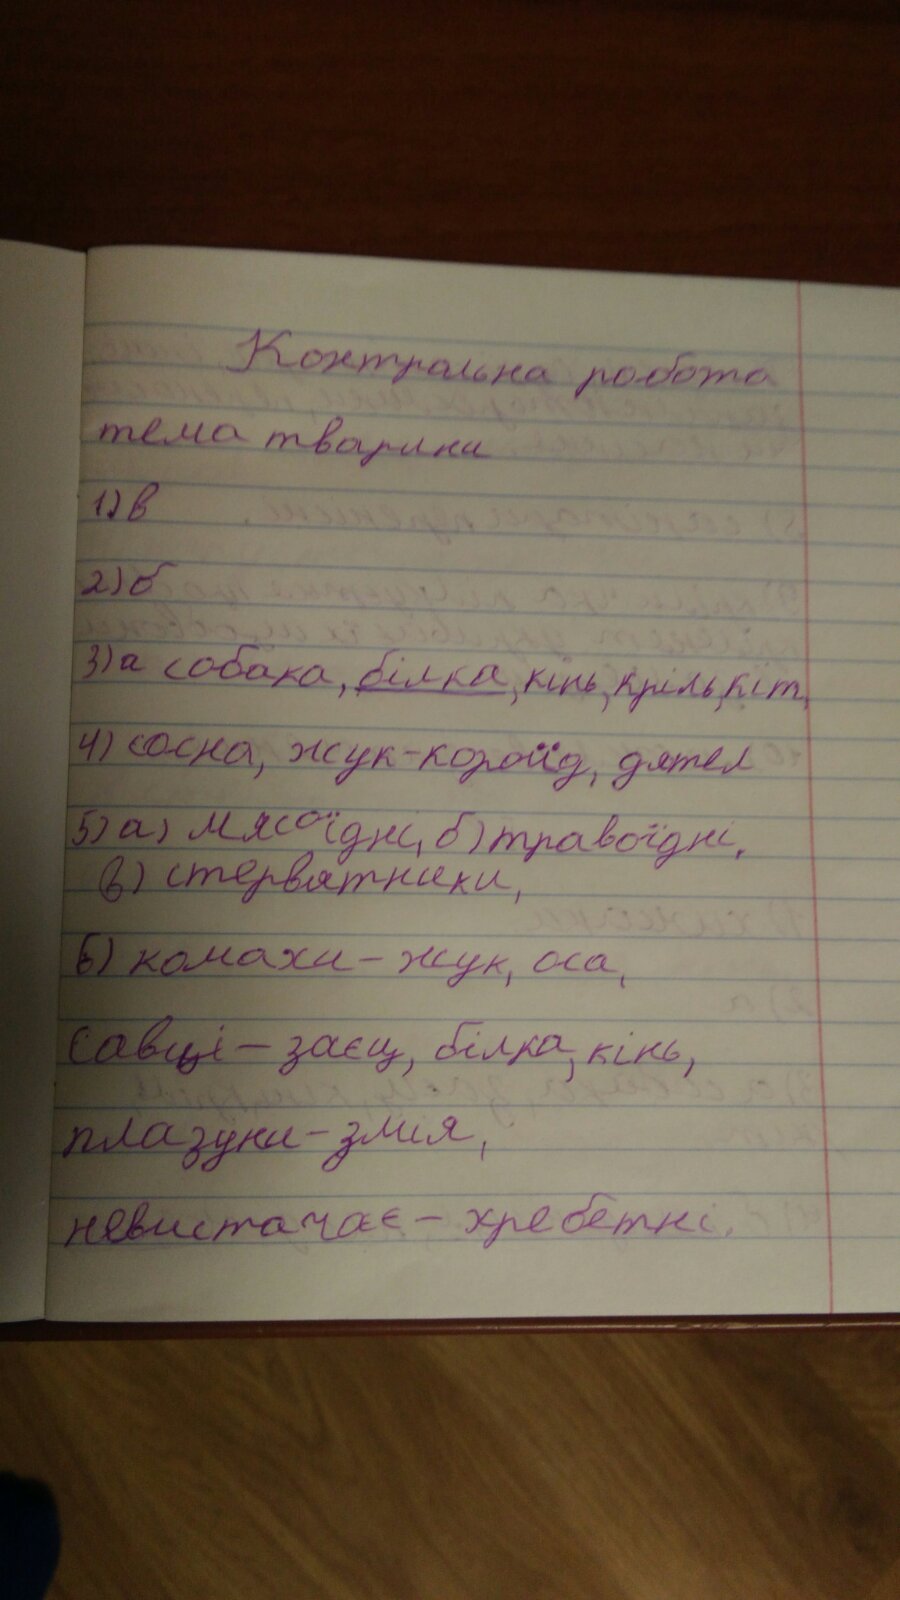 Контрольна робота
тема тварини
1) в
2) б
3) а собака, білка, кінь, кріль, кіт,
4) сосна, жук-короїд, дятел
5) а) мясоїдні, б) травоїдні,
в) стервятники,
6) комахи - жук, оса,
Савці - заєц, білка, кінь,
плазуни - змія,
невистачає - хребетні.